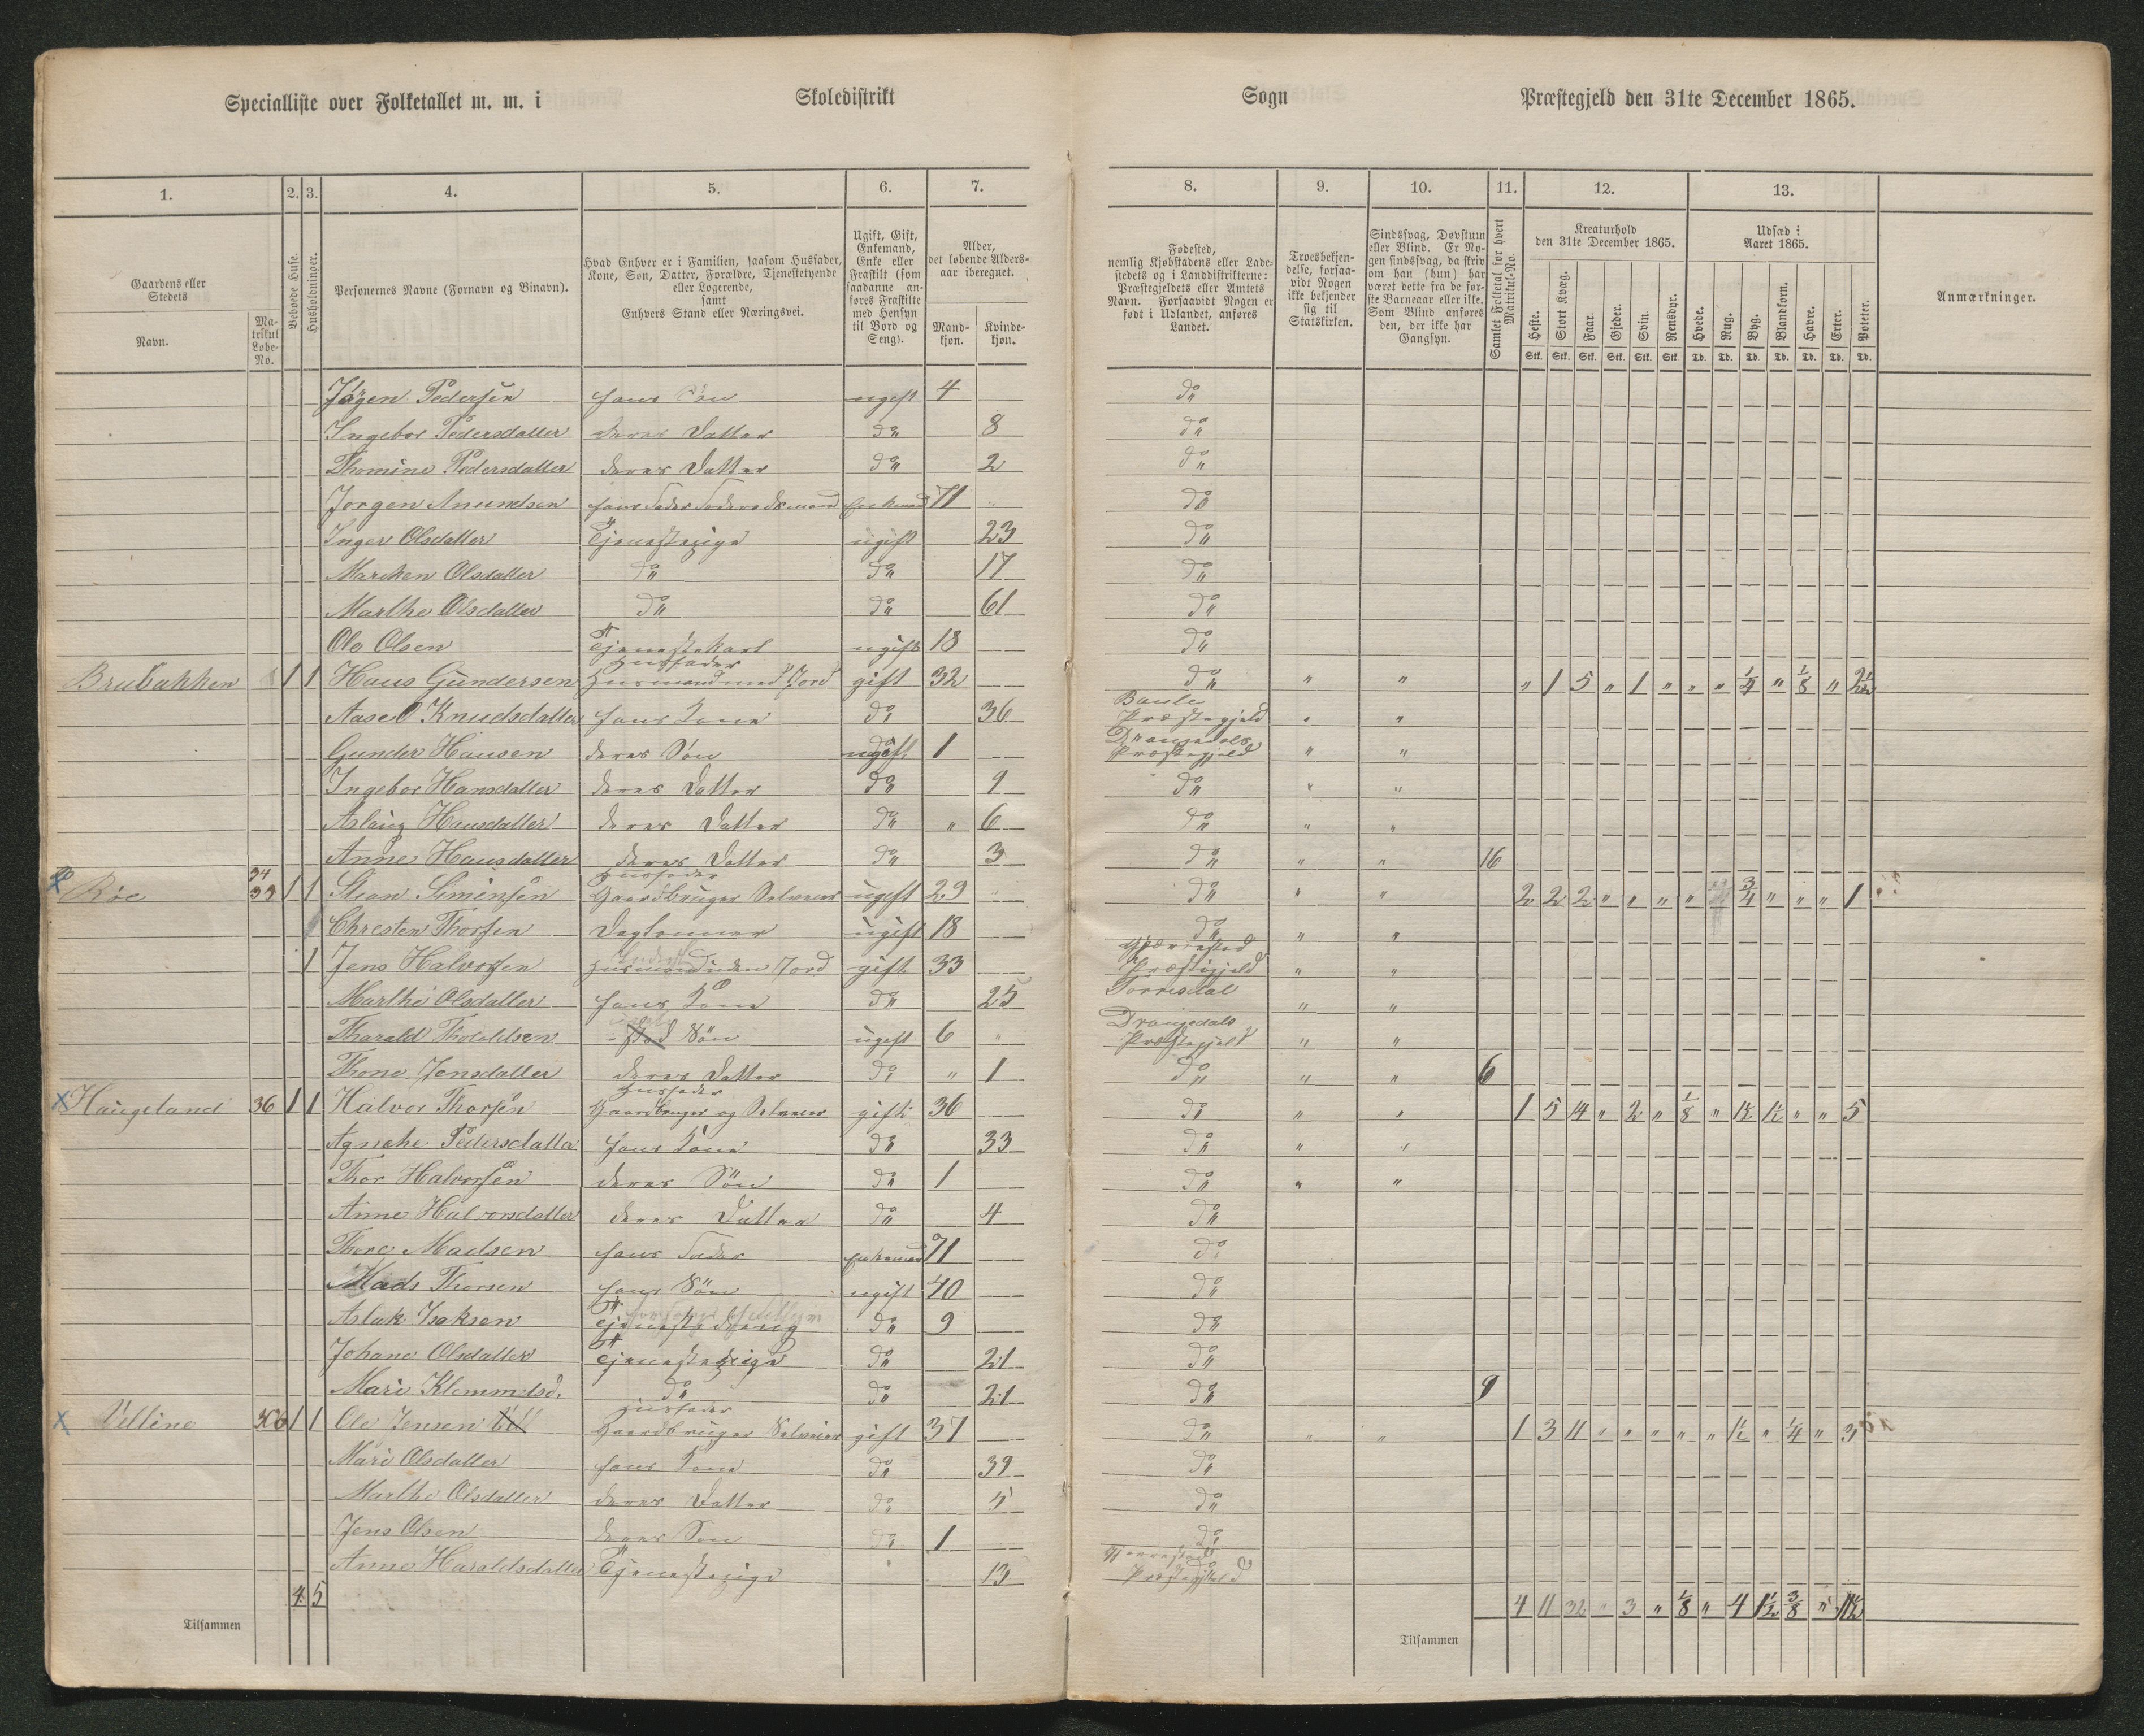 Specialliste over Folketallet m. m. i Skoledistrikt Sogn Præstegjeld den 31te December 1865.
1. 2. 3. 4. 5. 6. 7. 8. 9. 10. 11. 12. 13.
Gaardens eller Stedets
Navn.
Matrikul Løbe-No.
Beboede Huse.
Husholdninger.
Personernes Navne (Fornavn og Binavn).
Hvad Enhver er i Familien, saasom Husfader, Kone, Søn, Datter, Forældre, Tjenestetyende eller Logerende, samt Enhvers Stand eller Næringsvei.
Ugift, Gift, Enkemand, Enke eller Fraskilt (som saadanne anføres Fraskilte med Hensyn til Bord og Seng).
Alder, det løbende Alders-aar iberegnet.
Mand-kjøn. Kvinde-kjøn.
Fødested, nemlig Kjøbstadens eller Ladestedets og i Landdistrikterne: Præstegjeldets eller Amtets Navn. Forsaavidt Nogen er født i Udlandet, anføres Landet.
Troesbekjendelse, forsaavidt Nogen ikke bekjender sig til Statskirken.
Sindssvag, Døvstum eller Blind. Er Nogen sindssvag, da skriv om han (hun) har været dette fra de første Barneaar eller ikke. Som Blind anføres den, der ikke har Gangsyn.
Samlet Folketal for hvert Matrikul-No.
Kreaturhold den 31te December 1865.
Heste. Stort Kvæg. Faar. Gjeder. Svin. Rensdyr.
Udsæd i Aaret 1865.
Hvede. Rug. Byg. Blandkorn. Havre. Erter. Poteter.
Stk. Stk. Stk. Stk. Stk. Stk. Td. Td. Td. Td. Td. Td. Td.
Anmærkninger.
Jörgen Pedersen hans Søn ugift 4 do
Ingebor Pedersdatter deres Datter do 8 do
Thomine Pedersdatter deres Datter do 2 do
Jorgen Anundsen hans Fader Føderaadsmand Enkemand 71 do
Inger Olsdatter Tjenestepige ugift 23 do
Mareken Olsdatter do do 17 do
Marthe Olsdatter do do 61 do
Ole Olsen Tjenestekarl ugift 18 do
Brubakken 1 1 Hans Gundersen Husfader Husmand med Jord gift 32 do " " " 1 5 " 1 " " " 1/4 " 1/8 " 2 1/2
Aasel Knudsdatter hans Kone do 36 Bamle Præstegjeld " "
Gunder Hansen deres Søn ugift 1 Drangedals Præstegjeld " "
Ingebor Hansdatter deres Datter do 9 do " "
Aslaug Hansdatter deres Datter do " 6 do " "
Anne Hansdatter deres Datter do 3 do " " 16
Roe 34 39 1 1 Stean Simensen Husfader Gaardbruger Selveier ugift 29 do " " 2 2 2 " " " " 3/4 " " " 1
Chresten Thorsen Daglonner ugift 18 do " "
1 Jens Halvorsen Husmand uden Jord gift 33 Gjerrestad Præstegjeld " "
Marthe Olsdatter hans Kone do 25 Torrisdal " "
Tharald Thololdsen Søn ugift 6 " Drangedals Præstegjeld " "
Thone Jensdatter deres Datter do " 1 do " " 6
Haugeland 36 1 1 Halvor Thorsen Husfader Gaardbruger og Selveier gift 36 do " " 1 5 14 " 2 " 1/8 " 1 1/2 1 1/2 " " 5
Agnethe Pedersdatter hans Kone do 33 do " "
Thor Halvorsen deres Søn do 1 do " "
Anne Halvorsdatter deres Datter do 4 do
Thore Madsen hans Fader Enkemand 71 do
Mads Thorsen hans Søn ugift 40 do
Aslak Isaksen Tjenestedreng do 9 do
Johane Olsdatter Tjenestepige do 21 do
Mari Klemmetsd. do do 21 do 9
Velline 1 1 Ole Jensen Husfader Gaardbruger Selveier gift 37 do " " 1 3 11 " " " " " 1 1/2 " 1/4 " 3
Mari Olsdatter hans Kone do 39 do
Marthe Olsdatter deres Datter do 5 do
Jens Olsen deres Søn do 1 do
Anne Haraldsdatter Tjenestepige 13 Gjerrestad Præstegjeld
4 5 4 11 32 " 3 " 1/8 " 4 1 1/2 3/8 " 11 1/2
Tilsammen Tilsammen